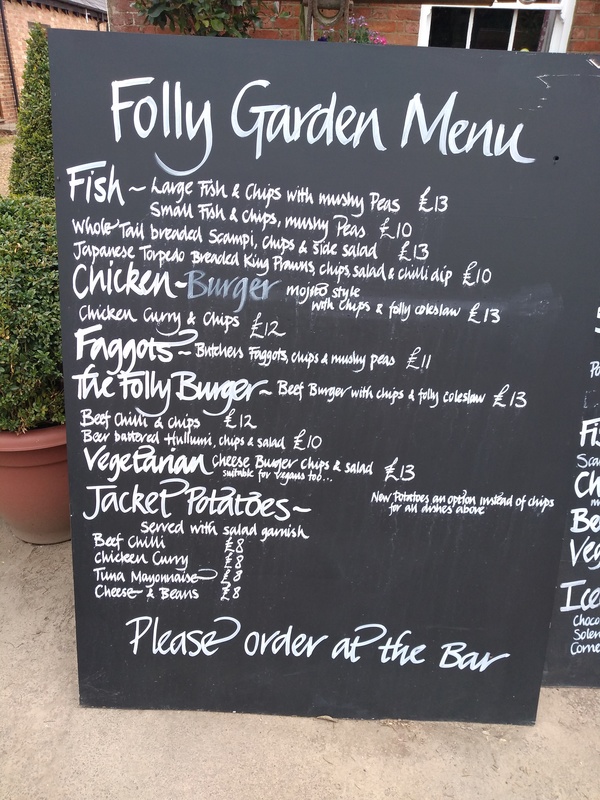 Folly Garden Menu
Fish ~ Large Fish & Chips with mushy Peas £13
Small Fish & Chips, mushy Peas £10
Whole Tail breaded Scampi, chips & side salad £13
Japanese Torpedo Breaded King Prawns, chips salad & chilli dip £10
Chicken-Burger mojito style
with Chips & folly coleslaw £13
Chicken Curry & Chips £12
Faggots ~ Butchers Faggots, chips & mushy peas £11
The Folly Burger ~ Beef Burger with chips & folly coleslaw £13
Beef Chilli & chips £12
Beer battered Hullumi, chips & salad £10
Vegetarian Cheese Burger chips & salad £13
suitable for vegans too...
Jacket Potatoes ~
New Potatoes an option instead of chips
for all dishes above
served with salad garnish
Beef Chilli £8
Chicken Curry £8
Tuna Mayonnaise £8
Cheese & Beans £8
Please order at the Bar
Ch
Be
Veg
Ice
Choco